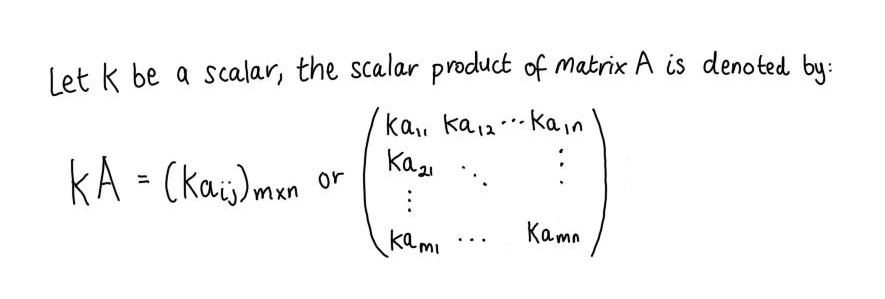 Let k be a scalar, the scalar product of matrix A is denoted by:
kA = (kaij)mxn or
ka11 ka12 ... ka1n
ka21 ⋱ ⋮
⋮
kam1 ... kamn